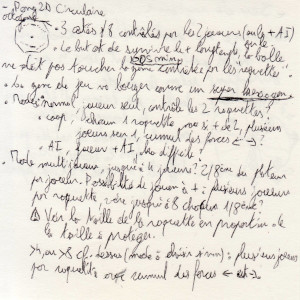 - Pong 2D Circulaire
octogone
- 3 côtés / 8 contrôlés par les 2 joueurs (ou 1 + AI)
• Le but est de survivre le + longtemps, la balle
ne doit pas toucher la zone contrôlée par les raquettes.
• La zone de jeu va bouger comme un hexagon
• Modes: normal, joueur seul, contrôle les 2 raquettes?
• coop, chacun 1 raquette, ou si + de 2, plusieurs
joueurs sur 1, cumul des forces ← →?
• AI, joueur + AI, difficile?
• Mode multi joueur, jusqu'à 4 joueurs? 2/8ème du plateau
par joueur. Possibilité de jouer à + : plusieurs joueurs
par raquette, voire jusqu'à 8 chacun 1/8ème?
⚠ Voir la taille de la raquette en proportion de
la taille à protéger.
>4, ou >8 cf. dessus (mode à choisir si nm) : plusieurs joueurs
par raquette avec cumul des forces ← et →